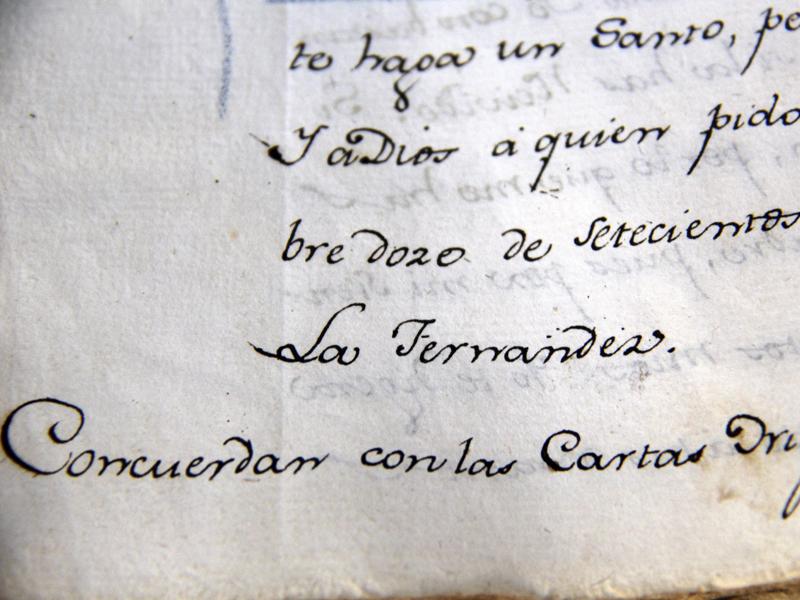 te haga un Santo, pe
Y a Dios a quien pido
bre doze de setecientos
La Fernandez.
Concuerdan con las Cartas Ori